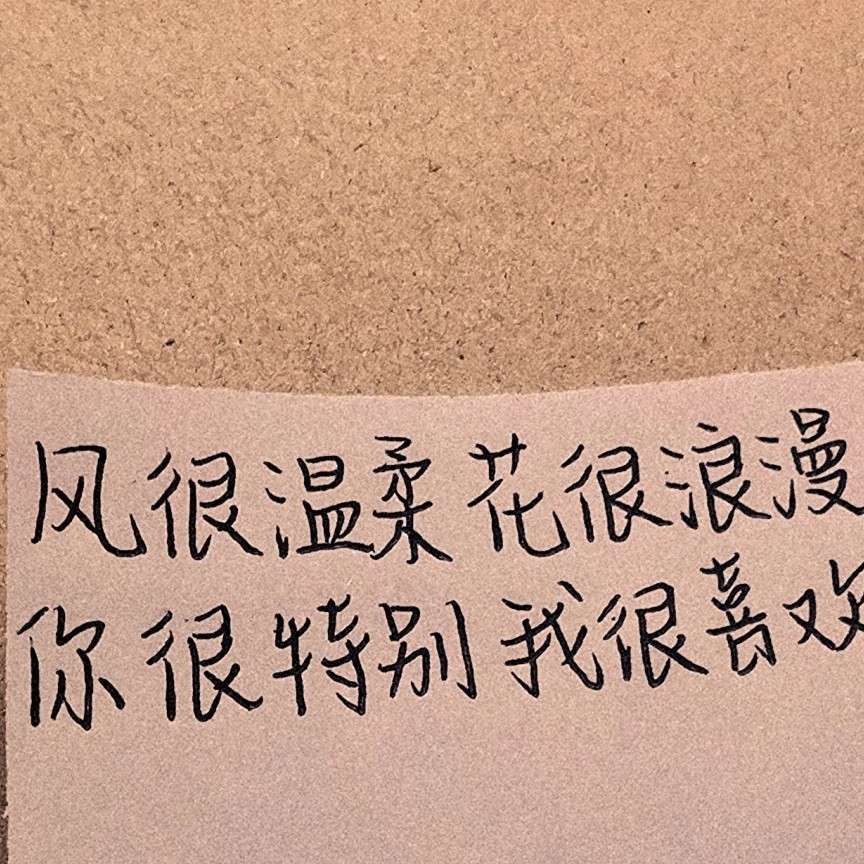 风很温柔 花很浪漫
你很特别 我很喜欢